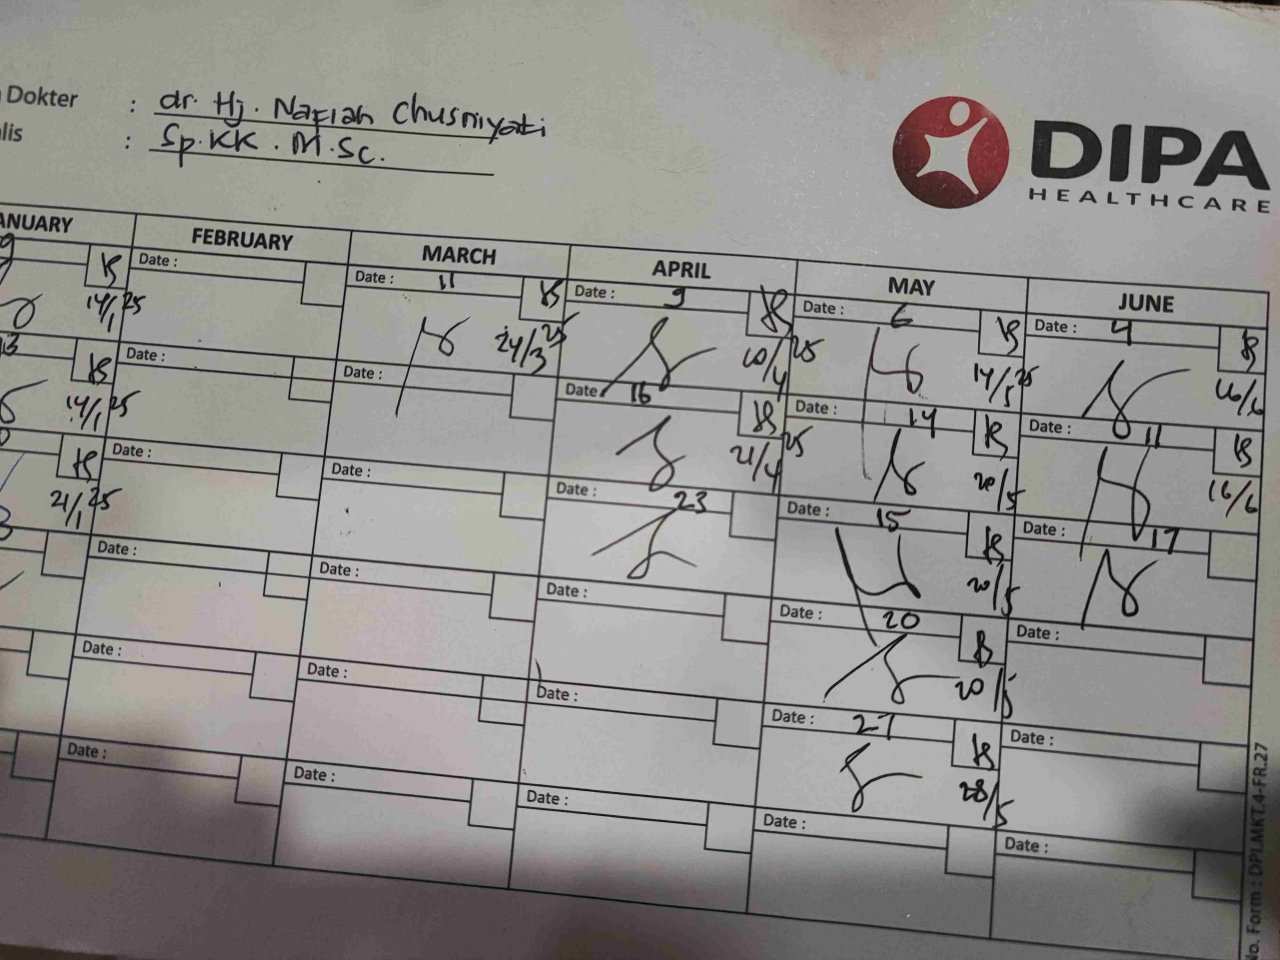 Dokter : dr. Hj. Nafiah Chusniyati
lis : Sp.KK. M.Sc.
DIPA
HEALTHCARE
ANUARY FEBRUARY MARCH APRIL MAY JUNE
9 Date : Date : 11 Date : 9 Date : 6 Date : 4
14/1 25 24/3 25 10/4 25 14/5 25 16/6
13 Date : Date : Date : 16 Date : 14 Date : 11
14/1 25 21/4 25 20/5 16/6
Date : Date : Date : 23 Date : 15 Date : 17
21/1 25 20/5
Date : Date : Date : Date : 20 Date :
20/5
Date : Date : Date : Date : 27 Date :
28/5
Date : Date : Date : Date : Date :
No. Form : DPI.MKT.4-FR.27